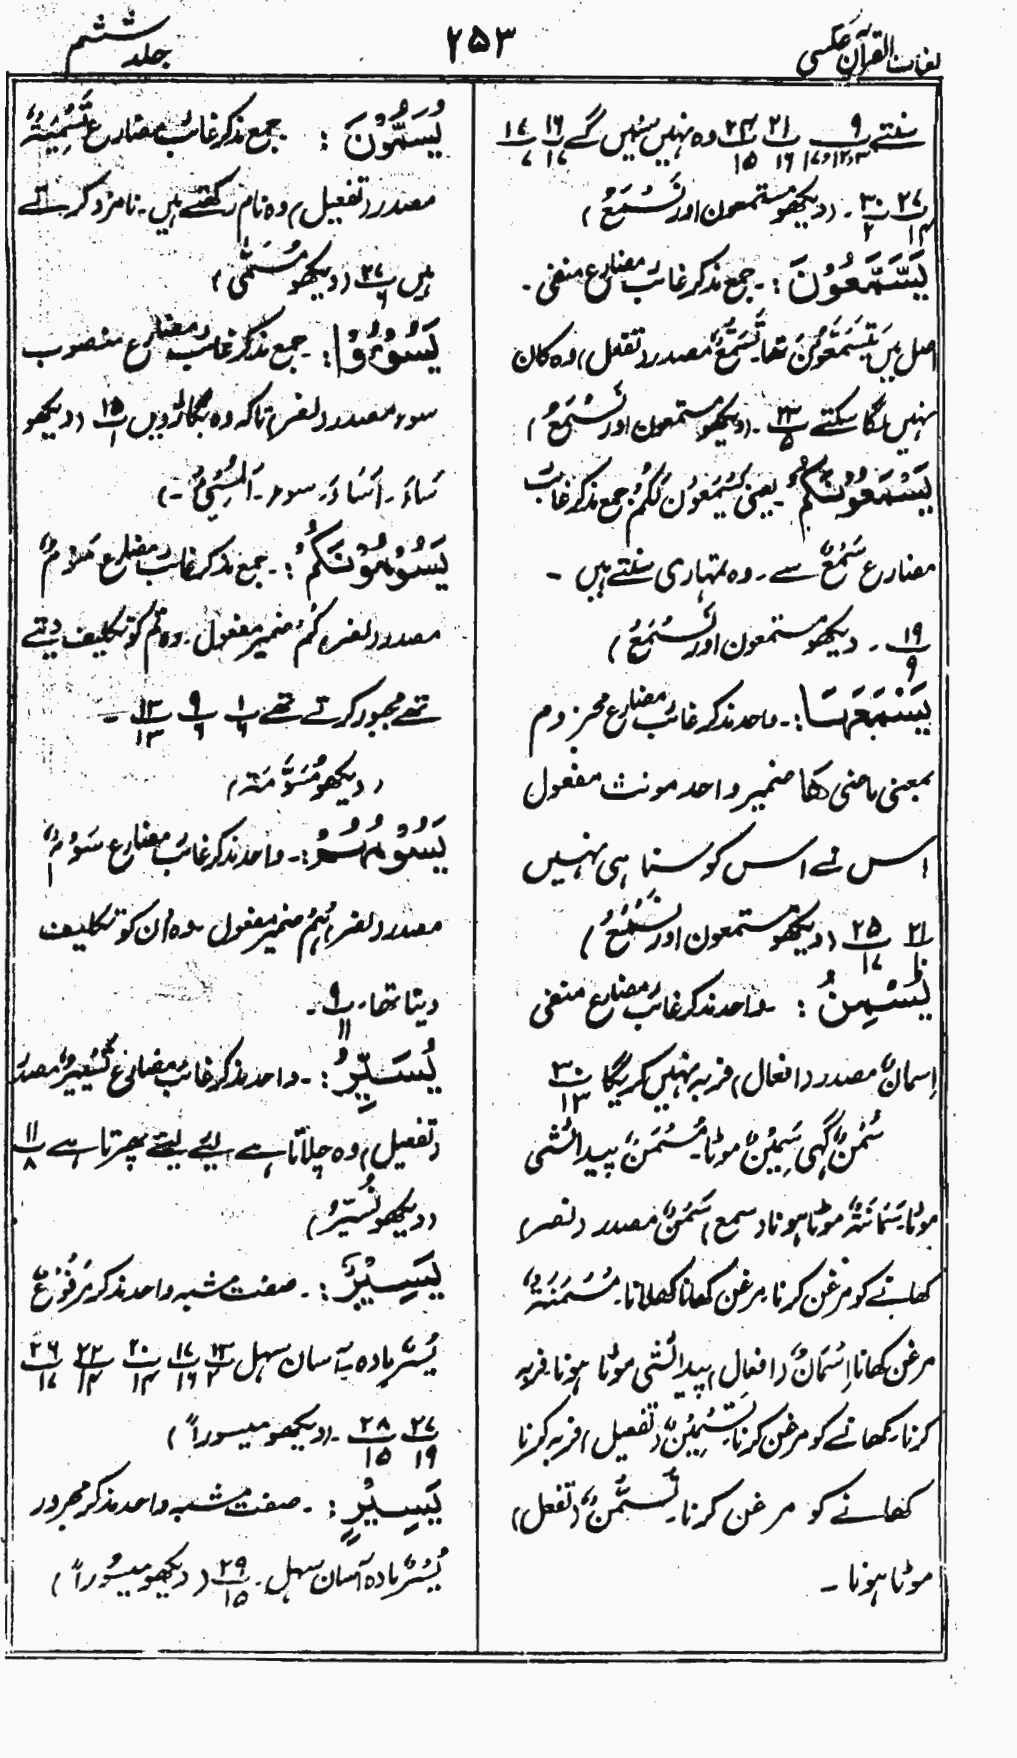 لغات القرآن عکسی
۲۵۳
جلد ششم
سنتے ۹/۳و۱۲و۱۷ ۲۱/۱۶ ۲۴/۱۵ وہ نہیں سنیں گے ۱۶/۱۷ ۱۷/۷
۲۷/۱۴ ۳۰/۲ ۔ (دیکھو مستمعون اور تَسْمَعُ)
یَسَّمَّعُوْنَ : ۔ جمع مذکر غائب مضارع منفی ۔
اصل میں یَتَسَمَّعُوْنَ تھا تَسَمُّعٌ مصدر (تفعل) وہ کان
نہیں لگا سکتے ۲۳/۵ ۔ (دیکھو مستمعون اور تَسْمَعُ)
یَسْمَعُوْنَکُمْ ۔ یعنی یَسْمَعُوْنَ لَکُمْ جمع مذکر غائب
مضارع سَمْعٌ سے ۔ وہ تمہاری سنتے ہیں ۔
۱۹/۹ ۔ دیکھو مستمعون اور تَسْمَعُ)
یَسْمَعْهَا : ۔ واحد مذکر غائب مضارع مجزوم
بمعنی ماضی ھا ضمیر واحد مونث مفعول
اس نے اس کو سنا ہی نہیں
۲۱/۱۰ ۲۵/۱۷ (دیکھو مستمعون اور تَسْمَعُ)
یُسْمِنُ : ۔ واحد مذکر غائب مضارع منفی
اِسمانٌ مصدر (افعال) فربہ نہیں کریگا ۳۰/۱۳
سُمْنٌ گہی سَمِیْنٌ موٹا۔ مُسْمَنٌ پیدائشی
موٹا۔ سَمَانَةٌ موٹا ہونا (سمع) سَمْنٌ مصدر (نصر)
کھانے کو مرغن کرنا۔ مرغن کھانا کھلانا۔ مُسْمَنَةٌ
مرغن کھانا اِسْمَانٌ (افعال) پیدائشی موٹا ہونا۔ فربہ
کرنا۔ کھانے کو مرغن کرنا۔ تَسْمِیْنٌ (تفعیل) فربہ کرنا
کھانے کو مرغن کرنا۔ تَسَمُّنٌ (تفعل)
موٹا ہونا ۔
یُسَمُّوْنَ : جمع مذکر غائب مضارع تَسْمِیَةٌ
مصدر (تفعیل) وہ نام رکھتے ہیں ۔ نامزد کرتے
ہیں ۲۷/۶ (دیکھو مُسَمًّی)
یَسُوْءُوْا : ۔ جمع مذکر غائب مضارع منصوب
سوء مصدر (نصر) تاکہ وہ بگاڑ دیں ۱۵/۱ (دیکھو
سَاءَ ۔ اَسَاءَ ۔ سوء ۔ اَلْمُسِیْءُ ۔)
یَسُوْمُوْنَکُمْ : ۔ جمع مذکر غائب مضارع سَوْمٌ
مصدر (نصر) کُمْ ضمیر مفعول ۔ وہ تم کو تکلیف دیتے
تھے مجبور کرتے تھے ۱/۶ ۹/۶ ۱۳/۱۳ ۔
(دیکھو مُسَوَّمَة)
یَسُوْمُهُمْ : ۔ واحد مذکر غائب مضارع سَوْمٌ
مصدر (نصر) ہُمْ ضمیر مفعول ۔ وہ اُن کو تکلیف
دیتا تھا ۹/۱۱ ۔
یُسَیِّرُ : ۔ واحد مذکر غائب مضارع تَسْیِیْرٌ مصدر
(تفعیل) وہ چلاتا ہے لئے لئے پھرتا ہے ۱۱/۸
(دیکھو نُسَیِّرُ)
یَسِیْرٌ : ۔ صفت مشبہ واحد مذکر مَرْفُوْعٌ
یُسْرٌ مادہ ۔ آسان سہل ۱۳/۲ ۱۷/۱۶ ۲۰/۱۴ ۲۲/۱۴ ۲۶/۱۷
۲۷/۱۹ ۲۸/۱۵ ۔ (دیکھو میسوراً)
یَسِیْرٍ : ۔ صفت مشبہ واحد مذکر مجرور
یُسْرٌ مادہ آسان سہل ۔ ۲۹/۱۵ (دیکھو میسوراً)